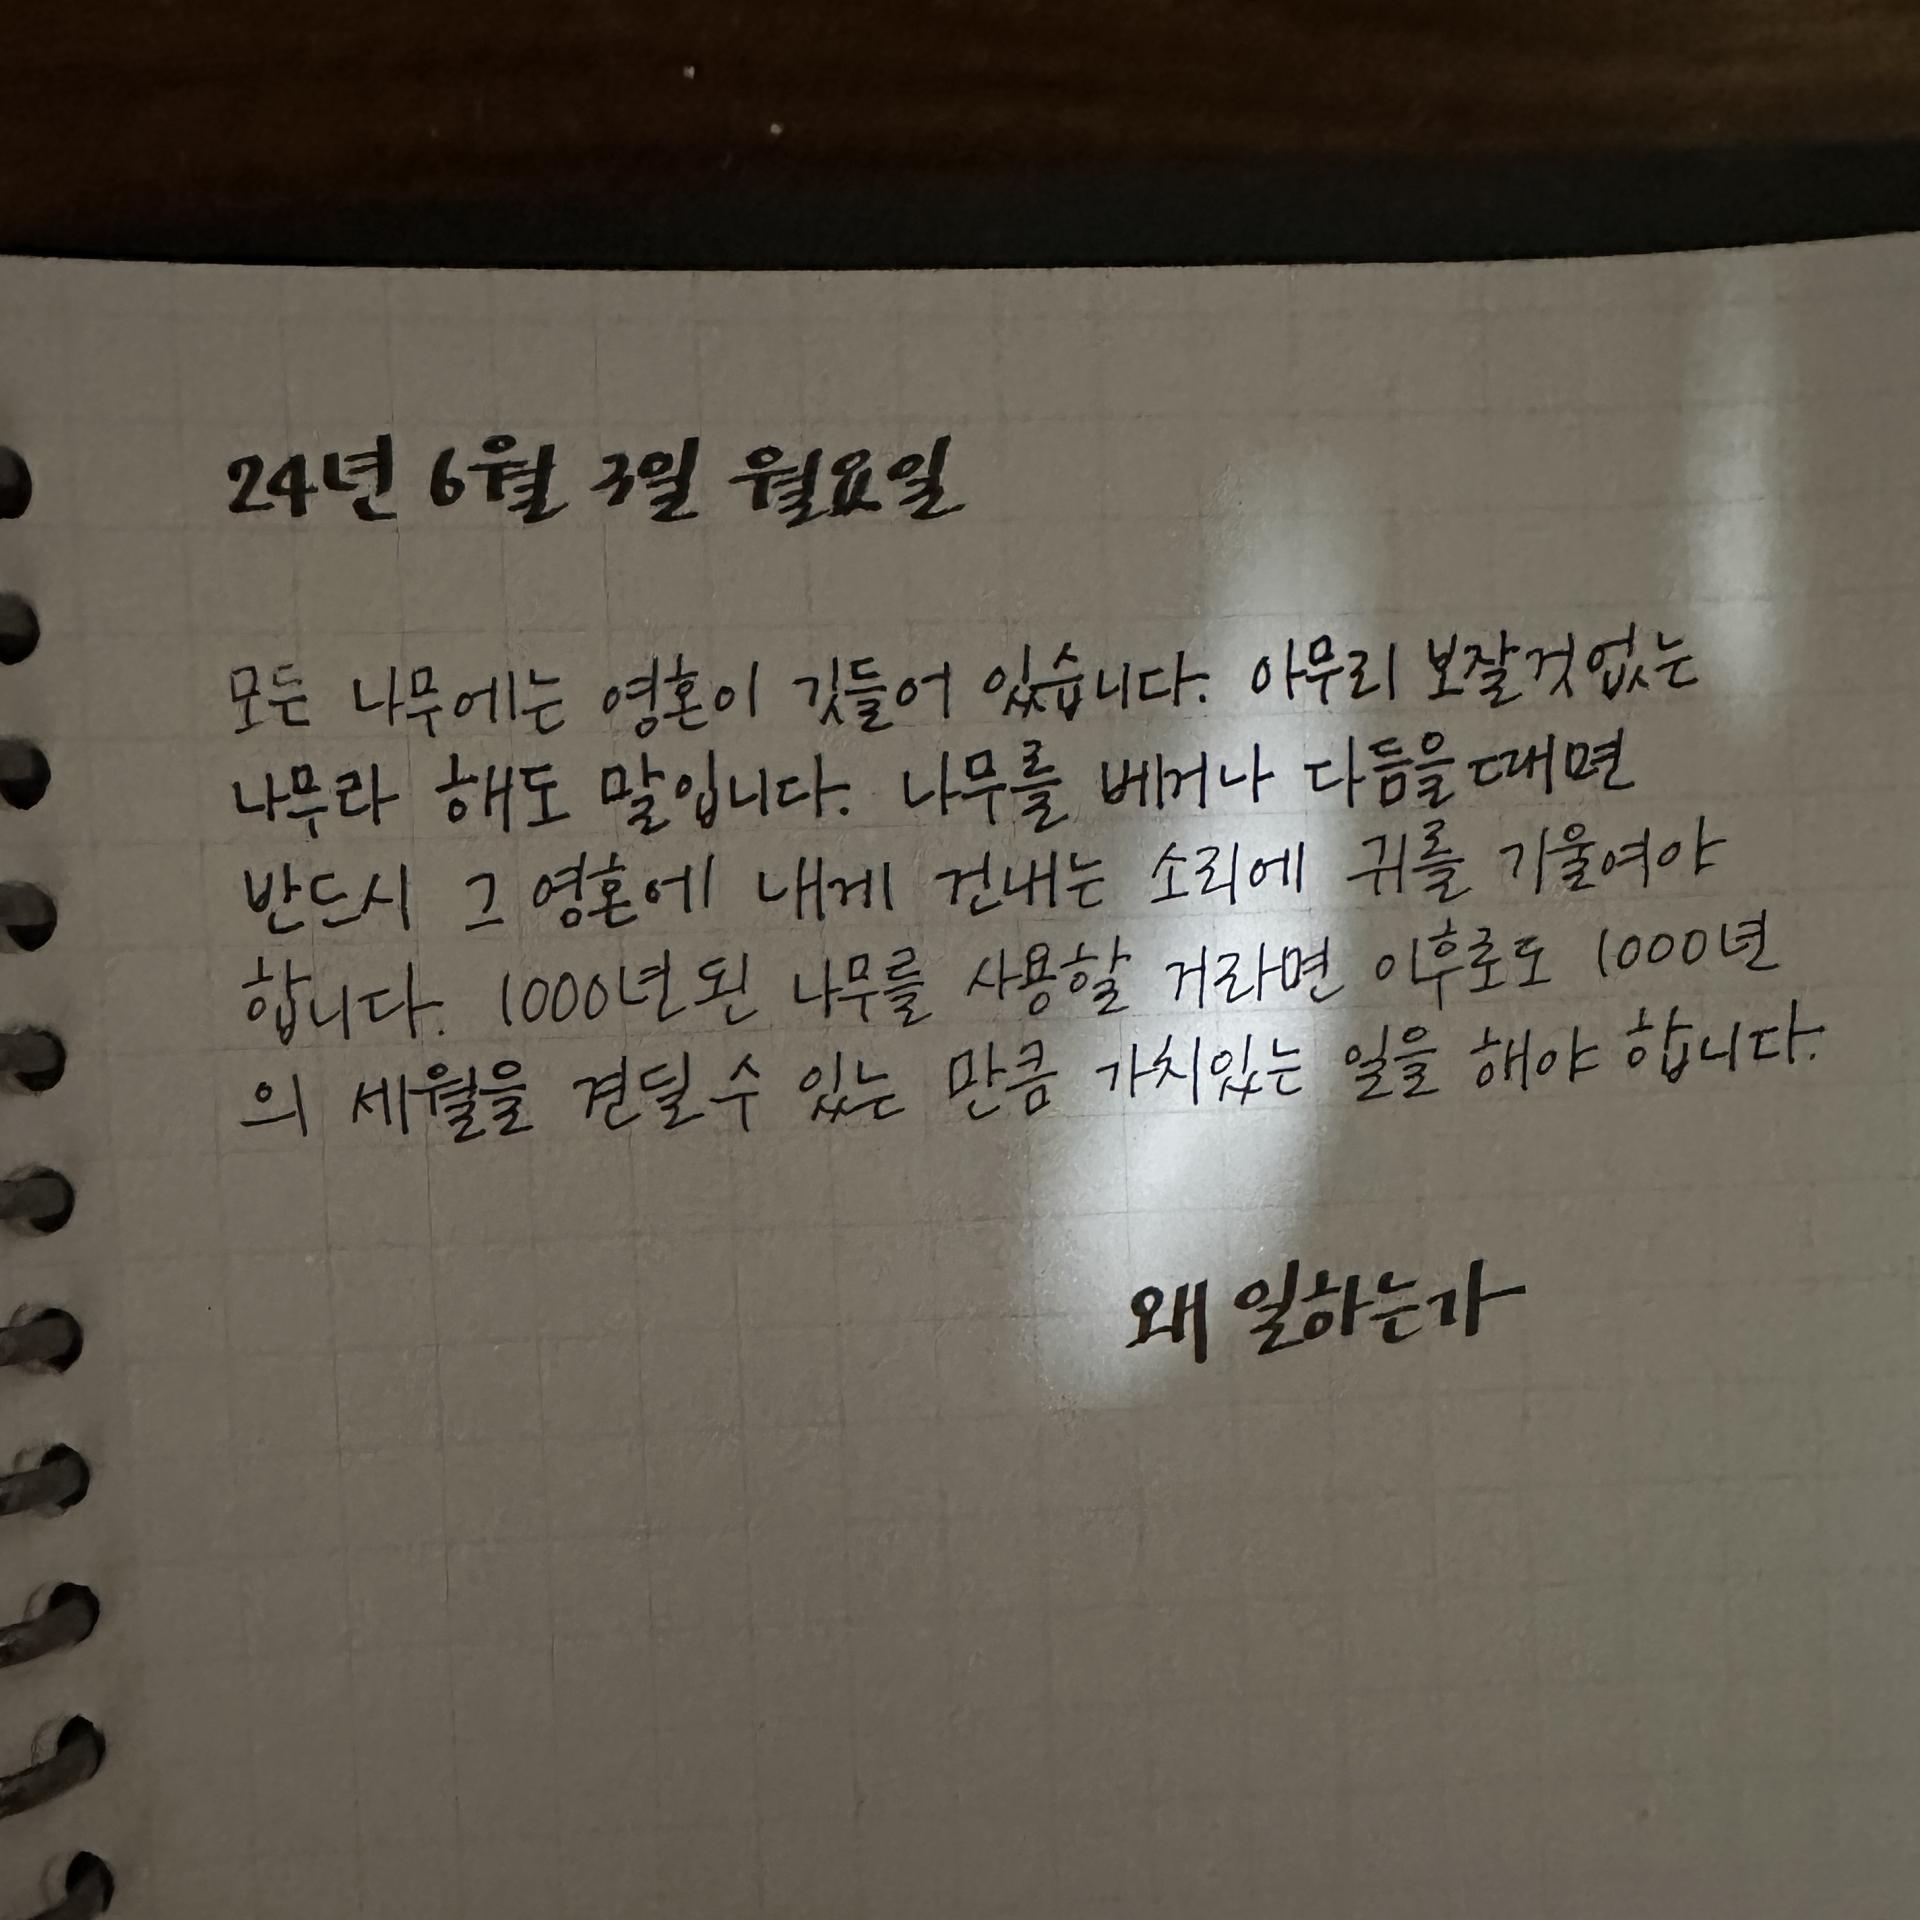 24년 6월 3일 월요일
모든 나무에는 영혼이 깃들어 있습니다. 아무리 보잘것없는
나무라 해도 말입니다. 나무를 베거나 다듬을때면
반드시 그 영혼에 내게 건내는 소리에 귀를 기울여야
합니다. 1000년된 나무를 사용할 거라면 이후로도 1000년
의 세월을 견딜 수 있는 만큼 가치있는 일을 해야 합니다.
왜 일하는가